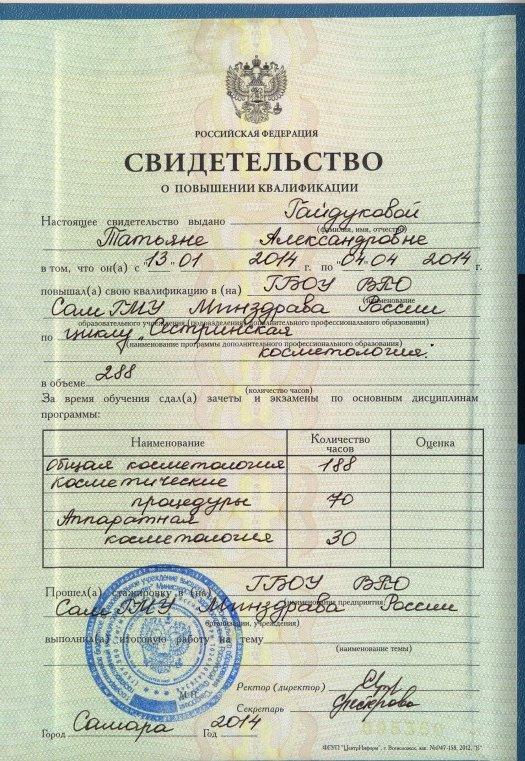 РОССИЙСКАЯ ФЕДЕРАЦИЯ
СВИДЕТЕЛЬСТВО
О ПОВЫШЕНИИ КВАЛИФИКАЦИИ
Настоящее свидетельство выдано Гайдуковой
(фамилия, имя, отчество)
Татьяне Александровне
в том, что он(а) с 13.01 2014 г. по "04".04 2014 г.
повышал(а) свою квалификацию в (на) ГБОУ ВПО
(наименование
СамГМУ Минздрава России
образовательного учреждения (подразделения) дополнительного профессионального образования)
по циклу "Сестринская
(наименование программы дополнительного профессионального образования)
косметология"
в объеме 288
(количество часов)
За время обучения сдал(а) зачеты и экзамены по основным дисциплинам
программы:
Наименование Количество часов Оценка
Общая косметология 188
Косметические
процедуры 70
Аппаратная
косметология 30
Прошел(а) стажировку в (на) ГБОУ ВПО
(наименование предприятия,
СамГМУ Минздрава России
организации, учреждения)
выполнил(а) итоговую работу на тему
(наименование темы)
Ректор (директор)
М.П.
Секретарь
Город Самара Год 2014
ФГУП "ЦентрИнформ", г. Волоколамск, 2012, "В"